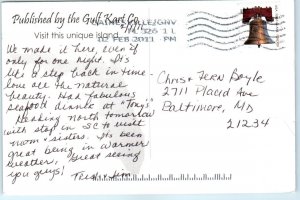 Published by the Gulf Kart Co.
Visit this unique island
GAINESVILLE/GNV
FL 326 1 L
12 FEB 2011 PM
We made it here, even if
only for one night. It's
like a step back in time.
Love all the natural
beauty. Had fabulous
seafood dinner at "Tony's"
Heading north tomorrow
will stop in SC to visit
mom & sisters. It's been
great being in warmer
weather. Great seeing
you guys!
Chris + Fern Boyle
2711 Placid Ave
Baltimore, MD
21234